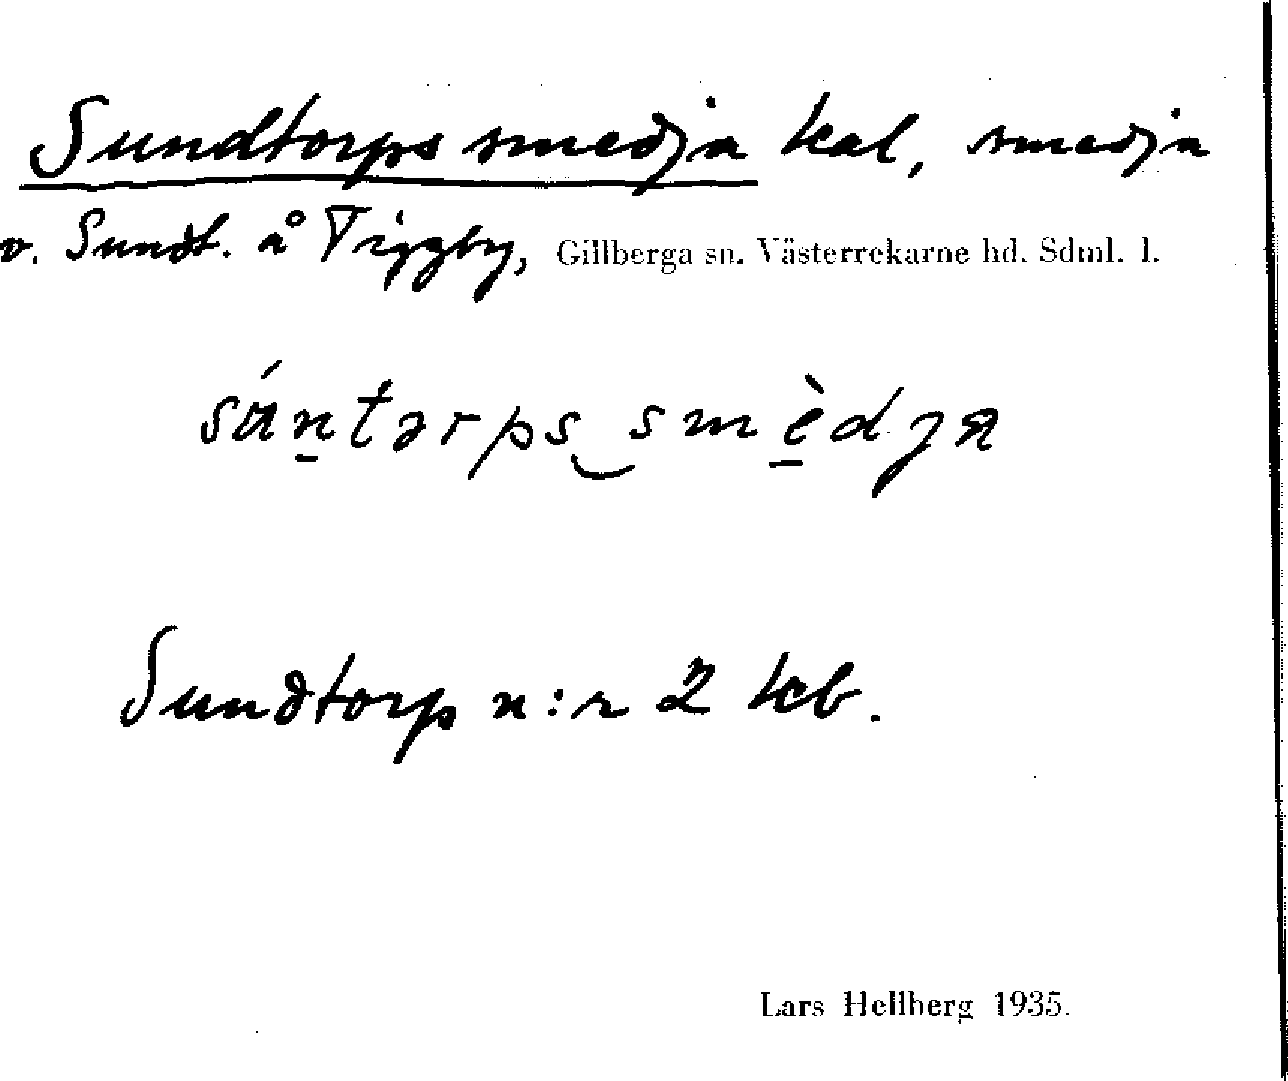 Sundtorps smedja kal, smedja
v. Sundt. å Tiggby, Gillberga sn. Västerrekarne hd. Sdml. l.
sán̲tərps‿smè̲dja
Sundtorp n:r 2 kb.
Lars Hellberg 1935.